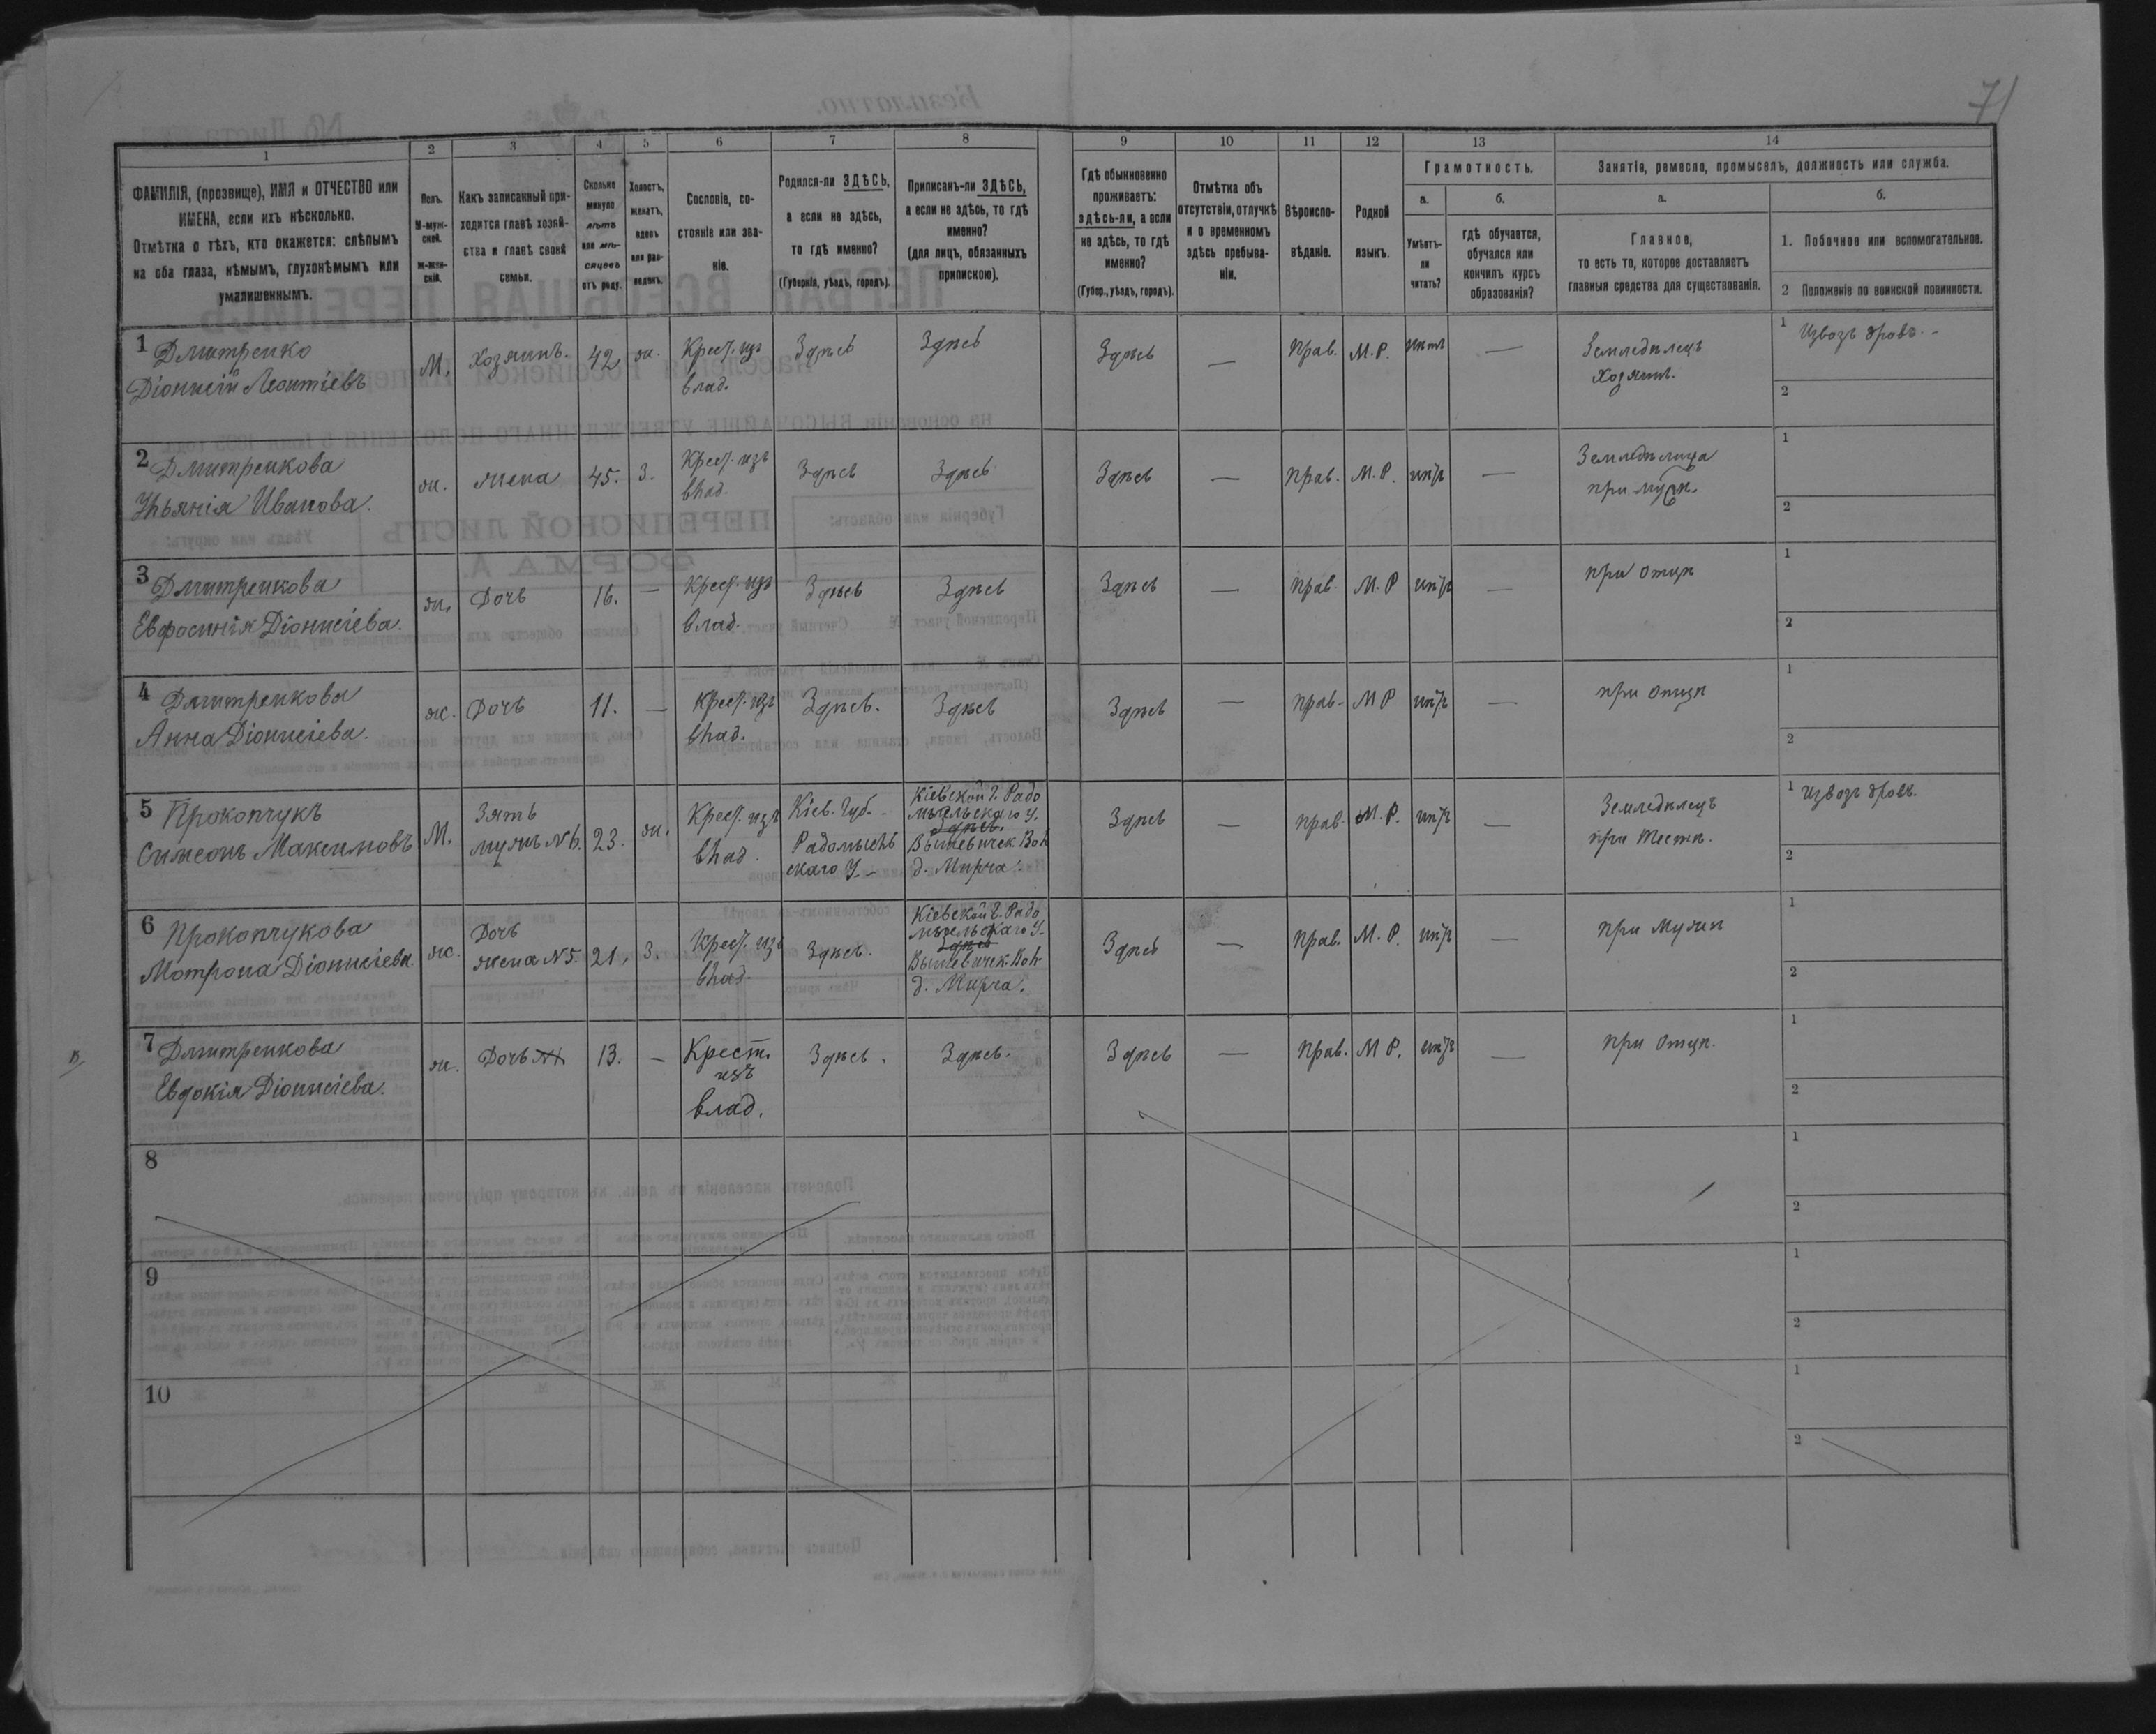 71
1
2
3
4
5
6
7
8
9
10
11
12
13
14
ФАМИЛІЯ, (прозвище), ИМЯ и ОТЧЕСТВО или
ИМЕНА, если ихъ нѣсколько.
Отмѣтка о тѣхъ, кто окажется: слѣпымъ
на оба глаза, нѣмымъ, глухонѣмымъ или
умалишеннымъ.
Полъ.
М-муж-
ской.
Ж-жен-
скій.
Какъ записанный при-
ходится главѣ хозяй-
ства и главѣ своей
семьи.
Сколько
минуло
лѣтъ
или мѣ-
сяцевъ
отъ роду.
Холостъ,
женатъ,
вдовъ
или раз-
веденъ.
Сословіе, со-
стояніе или зва-
ніе.
Родился-ли ЗДѢСЬ,
а если не здѣсь,
то гдѣ именно?
(Губернія, уѣздъ, городъ).
Приписанъ-ли ЗДѢСЬ,
а если не здѣсь, то гдѣ
именно?
(для лицъ, обязанныхъ
припискою).
Гдѣ обыкновенно
проживаетъ:
здѣсь-ли, а если
не здѣсь, то гдѣ
именно?
(Губер., уѣздъ, городъ).
Отмѣтка объ
отсутствіи, отлучкѣ
и о временномъ
здѣсь пребыва-
ніи.
Вѣроиспо-
вѣданіе.
Родной
языкъ.
Грамотность.
а.
Умѣетъ-
ли
читать?
б.
гдѣ обучается,
обучался или
кончилъ курсъ
образованія?
Занятіе, ремесло, промыселъ, должность или служба.
а.
Главное,
то есть то, которое доставляетъ
главныя средства для существованія.
б.
1. Побочное или вспомогательное.
2 Положеніе по воинской повинности.
1 Дмитренко
Діонисій Леонтіевъ
М.
Хозяинъ.
42
ж.
Крест. изъ
влад.
Здѣсь
Здѣсь
Здѣсь
—
Прав.
М.Р.
нѣтъ
—
Земледѣлецъ
Хозяинъ.
1 Извозъ дровъ. -
2
2 Дмитренкова
Ульянія Иванова.
ж.
жена
45.
З.
Крест. изъ
влад.
Здѣсь
Здѣсь
Здѣсь
—
Прав.
М.Р.
нѣтъ
—
Земледѣлица
при мужѣ.
1
2
3 Дмитренкова
Евфосинія Діонисіева.
ж.
Дочь
16.
—
Крест. изъ
влад.
Здѣсь
Здѣсь
Здѣсь
—
Прав.
М.Р
нѣтъ
—
при отцѣ
1
2
4 Дмитренкова
Анна Діонисіева.
ж.
Дочь
11.
—
Крест. изъ
влад.
Здѣсь.
Здѣсь
Здѣсь
—
Прав.
М Р
нѣтъ
—
при отцѣ
1
2
5 Прокопчукъ
Симеонъ Максимовъ
М.
Зять
мужъ №6.
23.
ж.
Крест. изъ
влад.
Кіев. Губ.
Радомысль
скаго У.
Кіевской г. Радо
мысльскаго У.
Здѣсь.
Вышевичск Вол
д. Мирча.
Здѣсь
—
прав.
М.Р.
нѣтъ
—
Земледѣлецъ
при Тестѣ.
1 Извозъ дровъ.
2
6 Прокопчукова
Мотрона Діонисіева.
ж.
Дочь
жена №5.
21.
З.
Крест. изъ
влад.
Здѣсь.
Кіевской Г. Радо
мысльскаго У.
Здѣсь
Вышевичск. Вол
д. Мирча.
Здѣсь
—
Прав.
М.Р.
нѣтъ
—
при Мужѣ
1
2
7 Дмитренкова
Евдокія Діонисіева.
ж.
Дочь
13.
—
Крест.
изъ
влад.
Здѣсь.
Здѣсь.
Здѣсь
—
Прав.
М Р.
нѣтъ
—
при отцѣ.
1
2
8
1
2
9
1
2
10
1
2